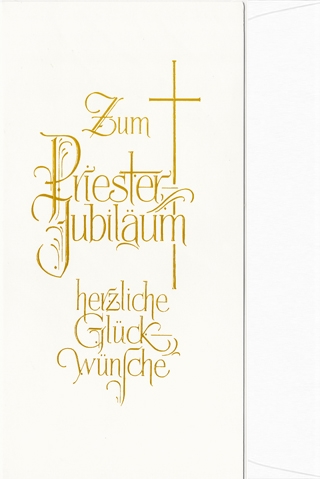 Zum
Priester-
Jubiläum
herzliche
Glück-
wünſche